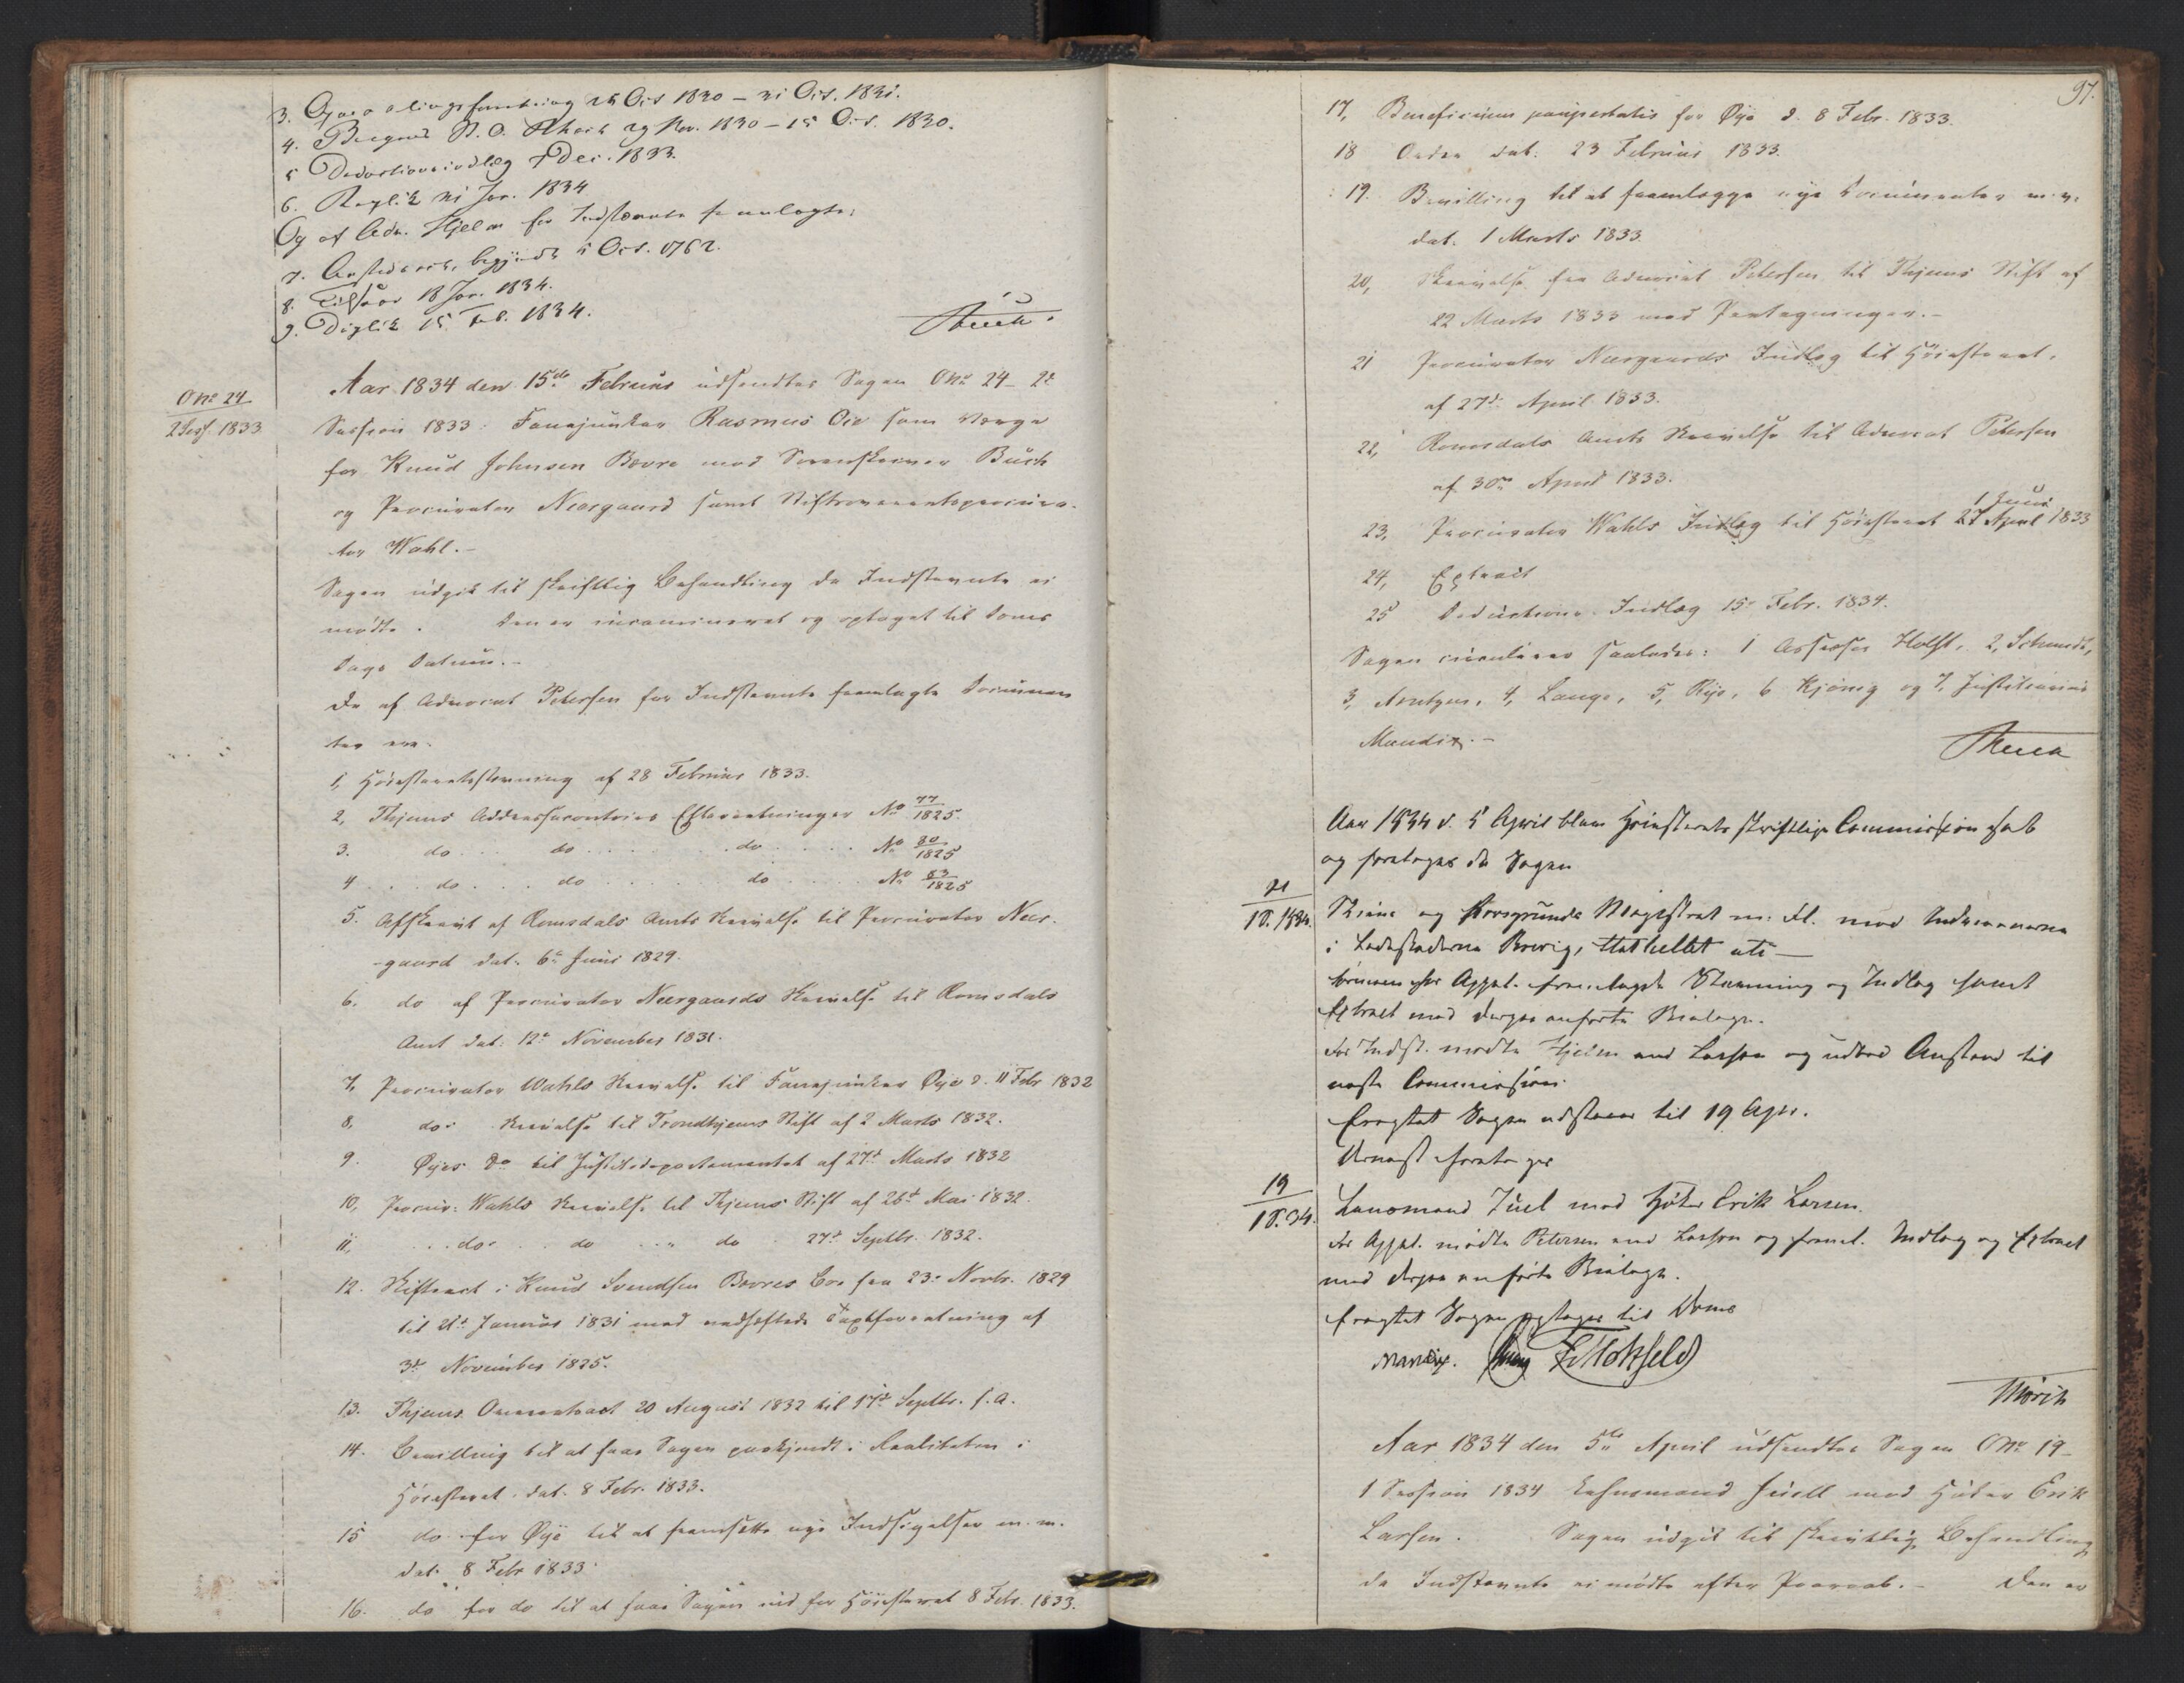 3. Opgaaelingsforretning 25 Oct 1830 – 21 Oct. 1831.
4. 29 Nov. 1830 – 15 Oct. 1830.
5 Deductionsindlæg 7 Dec. 1833.
6. Replik 21 Jan. 1834
Og af Adv. Hjelm for Indstævnte fremlagte:
7. begyndt 5 Oct. 1762.
8. Tilsvar 18 Jan. 1834.
9. Duplik 15 Feb. 1834.
Aar 1834 den 15de Februar udsendtes Sagen O No 24 – 2d
O No 24
2 Sess 1833
Session 1833: Fanejunker Rasmus Öie som Værge
for Knud Johnsen Bovre mod Sorenskriver Buch
og Procurator Neergaard samt Stiftsoverretsprocura-
tor Wahl. –
Sagen udgik til skriftlig Behandling da Indstævnte ei
mødte. Den er incamineret og optaget til Doms
Dags Datum. –
De af Advocat Petersen for Indstævnte fremlagte Documen
ter ere.
1, Höiesteretsstevning af 28 Februar 1833.
2, Thjems Addressecontoirs Efterretninger No 77/1825.
3. do do do No 80/1825
4 do do do No 83/1825
5. Afskrivt af Romsdals Amts Skrivelse til Procurator Neer-
-gaard dat. 6te Juni 1829.
6. do af Procurator Neergaards Skrivelse til Romsdals
Amt dat: 12te November 1831.
7, Procurator Wahls Skrivelse til Fanejunker Öye d. 11 Febr 1832
8, do: Skrivelse til Trondhjems Stift af 2 Marts 1832.
9. Öyes do til Justitsdepartementet af 27d Marts 1832
10, Procur: Wahls Skrivelse til Thjems Stift af 26d Mai 1832.
11, do do do 27d Septbr. 1832.
12. Skifteact i Knud Svendsen Bovres Bo fra 23 Novbr. 1829
til 21d Januar 1831 med vedheftede Taxtforretning af
3d November 1825.
13. Thjems Overretsact 20 August 1832 til 17d Septbr. s. A.
14. Bevilling til at faae Sagen paakjendt i Realiteten i
Höiesteret dat. 8 Febr. 1833.
15 do for Öye til at fremsætte nye Indsigelser m. m.
dat. 8 Febr 1833.
16. do for do til at faae Sagen ind for Höiesteret 8 Febr. 1833.
97.
17, Beneficium paupertatis for Öye d. 8 Febr. 1833.
18 Orden dat: 23 Februar 1833.
19. Bevilling til at fremlægge nye Documenter m. v.
dat. 1 Marts 1833.
20, Skrivelse fra Advocat Petersen til Thjems Stift af
22 Marts 1833 med Paategninger. –
21 Procurator Neergaards Indlæg til Höiesteret,
af 27d April 1833.
22, Romsdals Amts Skrivelse til Advocat Petersen
af 30te April 1833.
1 Juni
23, Procurator Wahls Indlæg til Höiesteret 27 April 1833
24, Extract
25 Deductions Indlæg 15 Febr. 1834.
Sagen circulerer saaledes: 1 Assessor Holst, 2, Schmidt,
3, Arntzen, 4, Lange, 5, Rye, 6 Kjönig og 7, Justitiarius
Mandix. –
Aar 1834 d. 5 April blev Höiesterets skriftlige Commission sat
og foretoges da Sagen
21
1 S. 1834.
Skiens og Porsgrunds Magistrat m. fl. mod Indvaanerne
i Ladestederne Brevig, Stathellet etc –
for Appel. fremlagde Stævning og Indlæg samt
Extract med derpaa anførte Bielage.
For Indst. mødte Hjelm ved Lasson og udbad Anstand til
næste Commission.
Eragtet Sagen udstaaer til 19 Apr.
Dernæst foretages
19
1 S. 34.
Lensmand Juel mod Høker Erik Larsen.
For Appel. mødte Petersen ved Lasson og freml. Indlæg og Extract
med derpaa anførte Bielage.
Eragtet Sagen optages til Doms
Mandix.
Aar 1834 den 5te April udsendtes Sagen O No 19 –
1 Session 1834 Lehnsmand Juell mod Høker Erik
Larsen. Sagen udgik til skrivtlig Behandling
da Indstævnte ei mødte efter Paaraab. – Den er